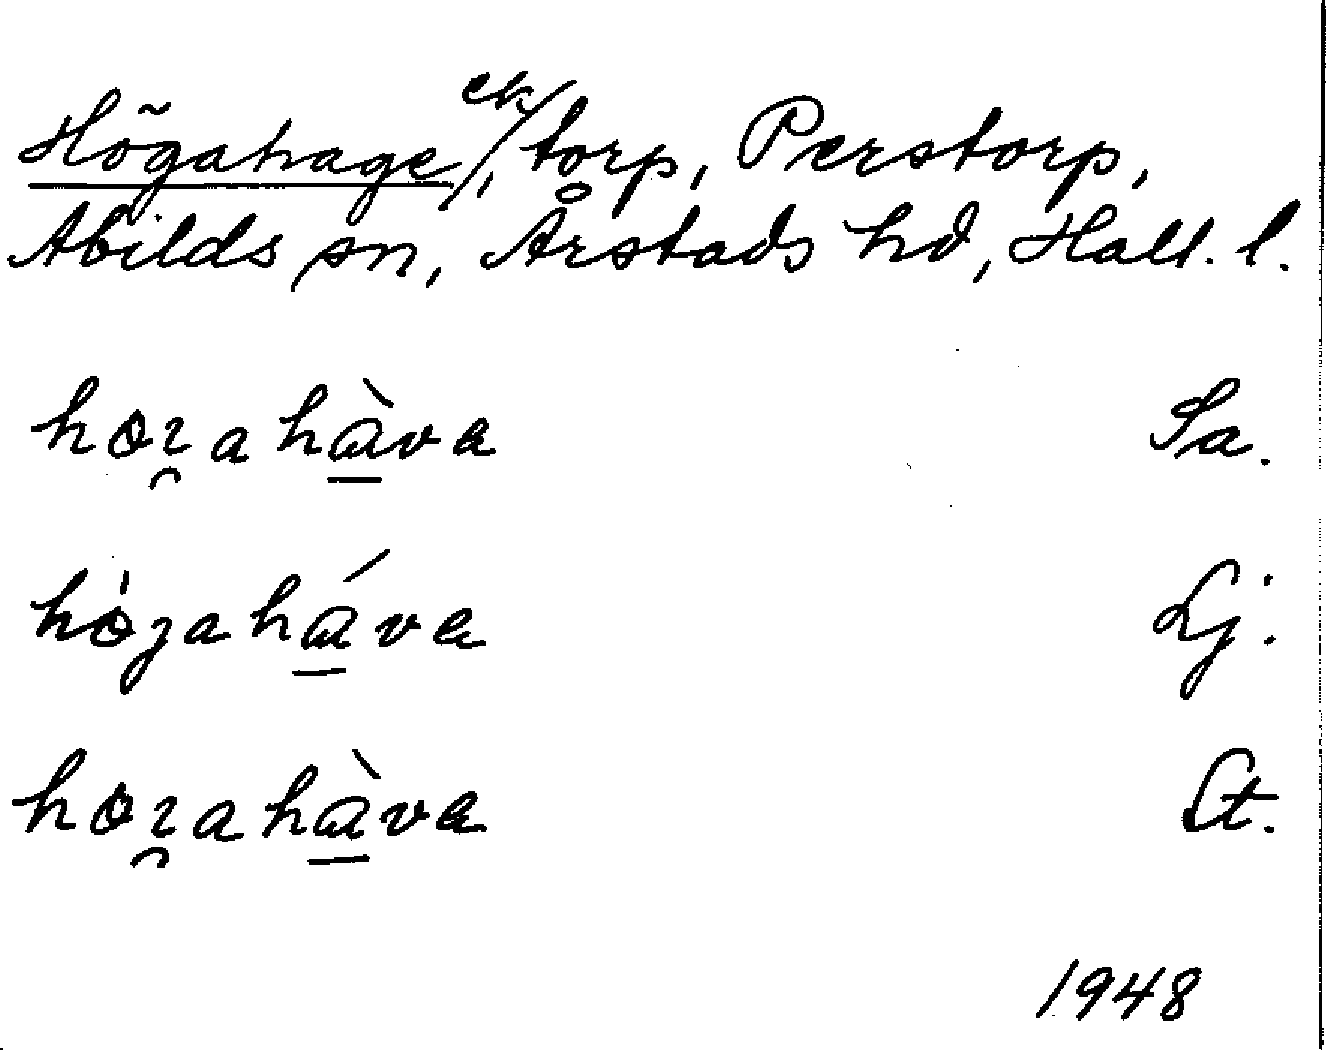 Högahage, ek/torp, Perstorp,
Abilds sn, Årstads hd, Hall. l.
hoꝛ̯ahàva Sa.
hóȷaháva Lj.
hoꝛ̯ahàva Ct.
1948